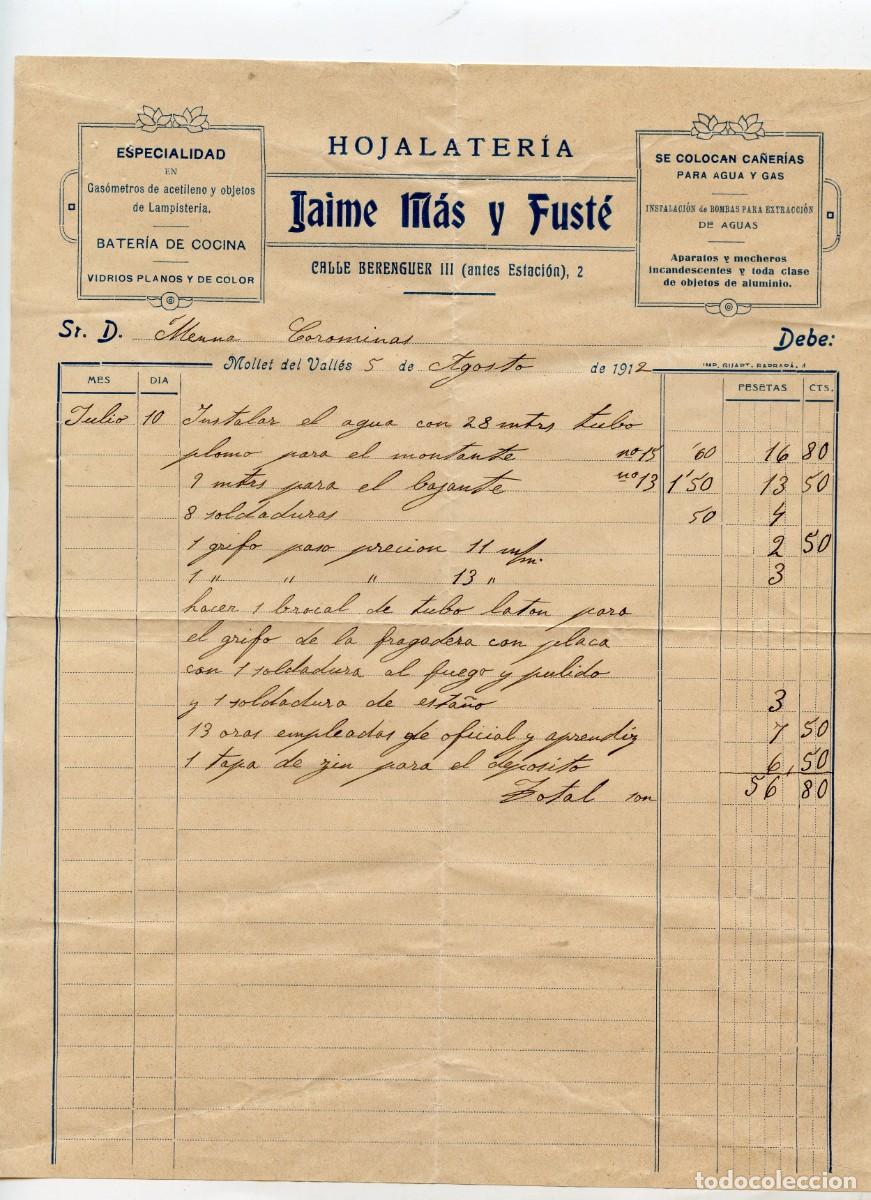 HOJALATERÍA
Jaime Más y Fusté
CALLE BERENGUER III (antes Estación), 2
ESPECIALIDAD
EN
Gasómetros de acetileno y objetos
de Lampistería.
BATERÍA DE COCINA
VIDRIOS PLANOS Y DE COLOR
SE COLOCAN CAÑERÍAS
PARA AGUA Y GAS
INSTALACIÓN de BOMBAS PARA EXTRACCIÓN
DE AGUAS
Aparatos y mecheros
incandescentes y toda clase
de objetos de aluminio.
Sr. D. Menna Corominas Debe:
Mollet del Vallés 5 de Agosto de 1912
IMP. GUART. BARBARÁ, 4
MES DIA PESETAS CTS.
Julio 10 Instalar el agua con 28 mtrs tubo
plomo para el montante nº 15 '60 16 80
9 mtrs para el bajante nº 13 1'50 13 50
8 soldaduras 50 4
1 grifo paso precion 11 m/m. 2 50
1 " " " 13 " 3
hacer 1 brocal de tubo laton para
el grifo de la fragadera con placa
con 1 soldadura al fuego y pulido
y 1 soldadura de estaño 3
13 oras empleadas de oficial y aprendiz 7 50
1 tapa de zin para el deposito 6,50
Total son 56 80
todocoleccion